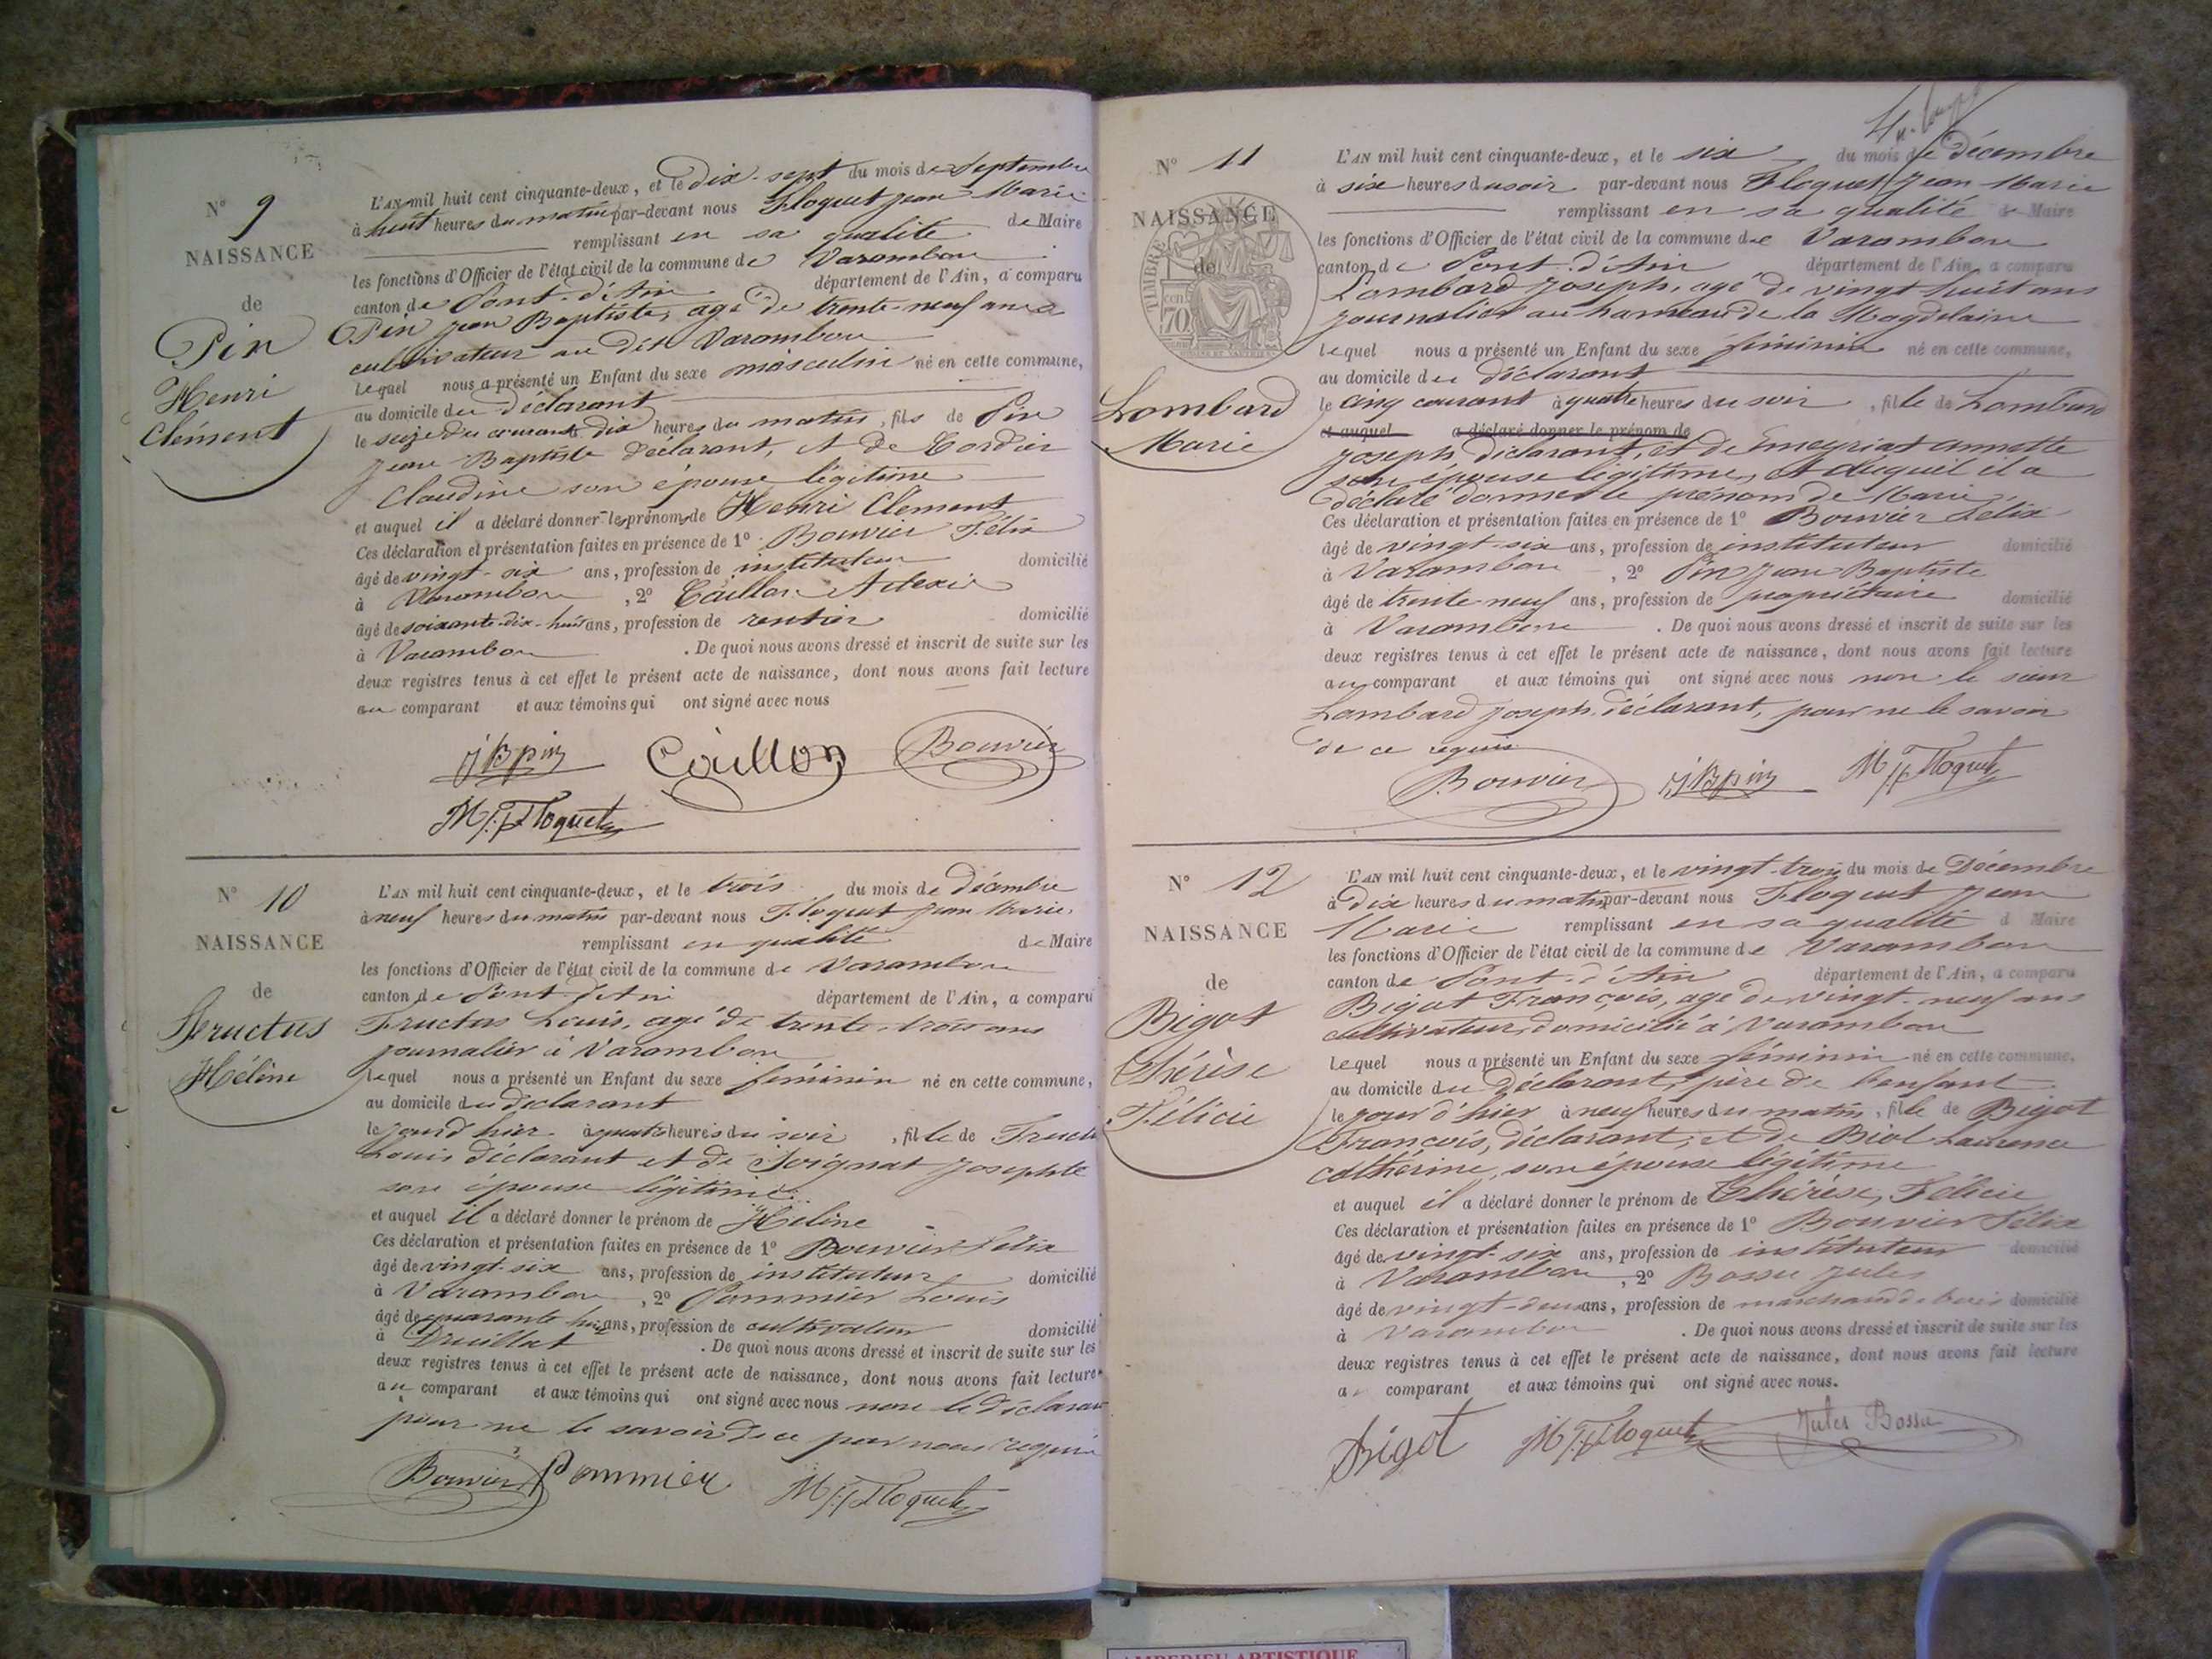 N° 9
NAISSANCE
de
Pin
Henri
Clément
L'AN mil huit cent cinquante-deux, et le dix-sept du mois de Septembre
à huit heures du matin par-devant nous Floquet Jean Marie
remplissant en sa qualité de Maire
les fonctions d'Officier de l'état civil de la commune de Varambon
canton de Pont-d'Ain département de l'Ain, a comparu
Pin Jean Baptiste, agé de trente-neuf ans
cultivateur au dit Varambon
Lequel nous a présenté un Enfant du sexe masculin né en cette commune,
au domicile du déclarant
le seize du courant à dix heures du matin, fils de Pin
Jean Baptiste déclarant, et de Cordier
Claudine son épouse légitime
et auquel il a déclaré donner les prénoms de Henri Clément
Ces déclaration et présentation faites en présence de 1° Bouvier Félix
âgé de vingt-six ans, profession de instituteur domicilié
à Varambon, 2° Caillon Alexis
âgé de soixante-dix-huit ans, profession de rentier domicilié
à Varambon . De quoi nous avons dressé et inscrit de suite sur les
deux registres tenus à cet effet le présent acte de naissance, dont nous avons fait lecture
au comparant et aux témoins qui ont signé avec nous
JB pin Caillon Bouvier
M J Floquet
N° 10
NAISSANCE
de
Fructus
Hélène
L'AN mil huit cent cinquante-deux, et le trois du mois de décembre
à neuf heures du matin par-devant nous Floquet Jean Marie
remplissant en qualité de Maire
les fonctions d'Officier de l'état civil de la commune de Varambon
canton de Pont-d'Ain département de l'Ain, a comparu
Fructus Louis, agé de trente-trois ans
journalier à Varambon
Lequel nous a présenté un Enfant du sexe féminin né en cette commune,
au domicile du déclarant
le jour d'hier à quatre heures du soir, fille de Fructus
Louis déclarant et de Josephte
son épouse légitime
et auquel il a déclaré donner le prénom de Hélène
Ces déclaration et présentation faites en présence de 1° Bouvier Félix
âgé de vingt-six ans, profession de instituteur domicilié
à Varambon, 2° Pommier Louis
âgé de quarante huit ans, profession de cultivateur domicilié
à Druillat . De quoi nous avons dressé et inscrit de suite sur les
deux registres tenus à cet effet le présent acte de naissance, dont nous avons fait lecture
au comparant et aux témoins qui ont signé avec nous non le déclarant
pour ne le savoir de ce par nous requis
Bouvier Pommier M J Floquet
N° 11
NAISSANCE
de
TIMBRE
70
Lombard
Marie
L'AN mil huit cent cinquante-deux, et le six du mois de décembre
à six heures du soir par-devant nous Floquet Jean Marie
remplissant en sa qualité de Maire
les fonctions d'Officier de l'état civil de la commune de Varambon
canton de Pont-d'Ain département de l'Ain, a comparu
Lombard Joseph, agé de vingt huit ans
journalier au hameau de la Magdelaine
Lequel nous a présenté un Enfant du sexe féminin né en cette commune,
au domicile du déclarant
le cinq courant à quatre heures du soir, fille de Lombard
et auquel a déclaré donner le prénom de
Joseph déclarant, et de Emeyriat annette
son épouse légitime, et duquel il a
déclaré donner le prénom de Marie
Ces déclaration et présentation faites en présence de 1° Bouvier Félix
âgé de vingt-six ans, profession de instituteur domicilié
à Varambon, 2° Pin Jean Baptiste
âgé de trente-neuf ans, profession de propriétaire domicilié
à Varambon . De quoi nous avons dressé et inscrit de suite sur les
deux registres tenus à cet effet le présent acte de naissance, dont nous avons fait lecture
au comparant et aux témoins qui ont signé avec nous non le sieur
Lombard Joseph déclarant, pour ne le savoir
de ce requis
Bouvier JB pin M J Floquet
N° 12
NAISSANCE
de
Bigot
Thérèse
Félicie
L'AN mil huit cent cinquante-deux, et le vingt-trois du mois de Décembre
à dix heures du matin par-devant nous Floquet Jean
Marie remplissant en sa qualité d Maire
les fonctions d'Officier de l'état civil de la commune de Varambon
canton de Pont-d'Ain département de l'Ain, a comparu
Bigot François, agé de vingt-neuf ans
cultivateur domicilié à Varambon
Lequel nous a présenté un Enfant du sexe féminin né en cette commune,
au domicile du déclarant, père de l'enfant
le jour d'hier à neuf heures du matin, fille de Bigot
François, déclarant, et de Biol Laurence
cathérine, son épouse légitime
et auquel il a déclaré donner le prénom de Thérèse, Félicie
Ces déclaration et présentation faites en présence de 1° Bouvier Félix
âgé de vingt-six ans, profession de instituteur domicilié
à Varambon, 2° Bossu Jules
âgé de vingt-deux ans, profession de marchand de bois domicilié
à Varambon . De quoi nous avons dressé et inscrit de suite sur les
deux registres tenus à cet effet le présent acte de naissance, dont nous avons fait lecture
a comparant et aux témoins qui ont signé avec nous.
Bigot M J Floquet Jules Bossu
AMBERIEU ARTISTIQUE